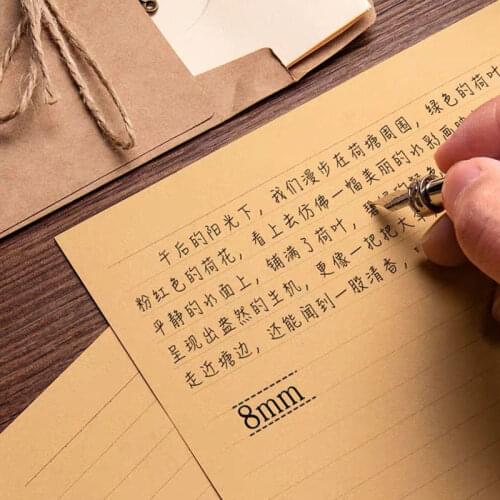 午后的阳光下，我们漫步在荷塘周围，绿色的荷叶
粉红色的荷花，看上去仿佛一幅美丽的水彩画
平静的水面上，铺满了荷叶，碧绿的
呈现出盎然的生机，更像一把把大
走近塘边，还能闻到一股清香，
8mm